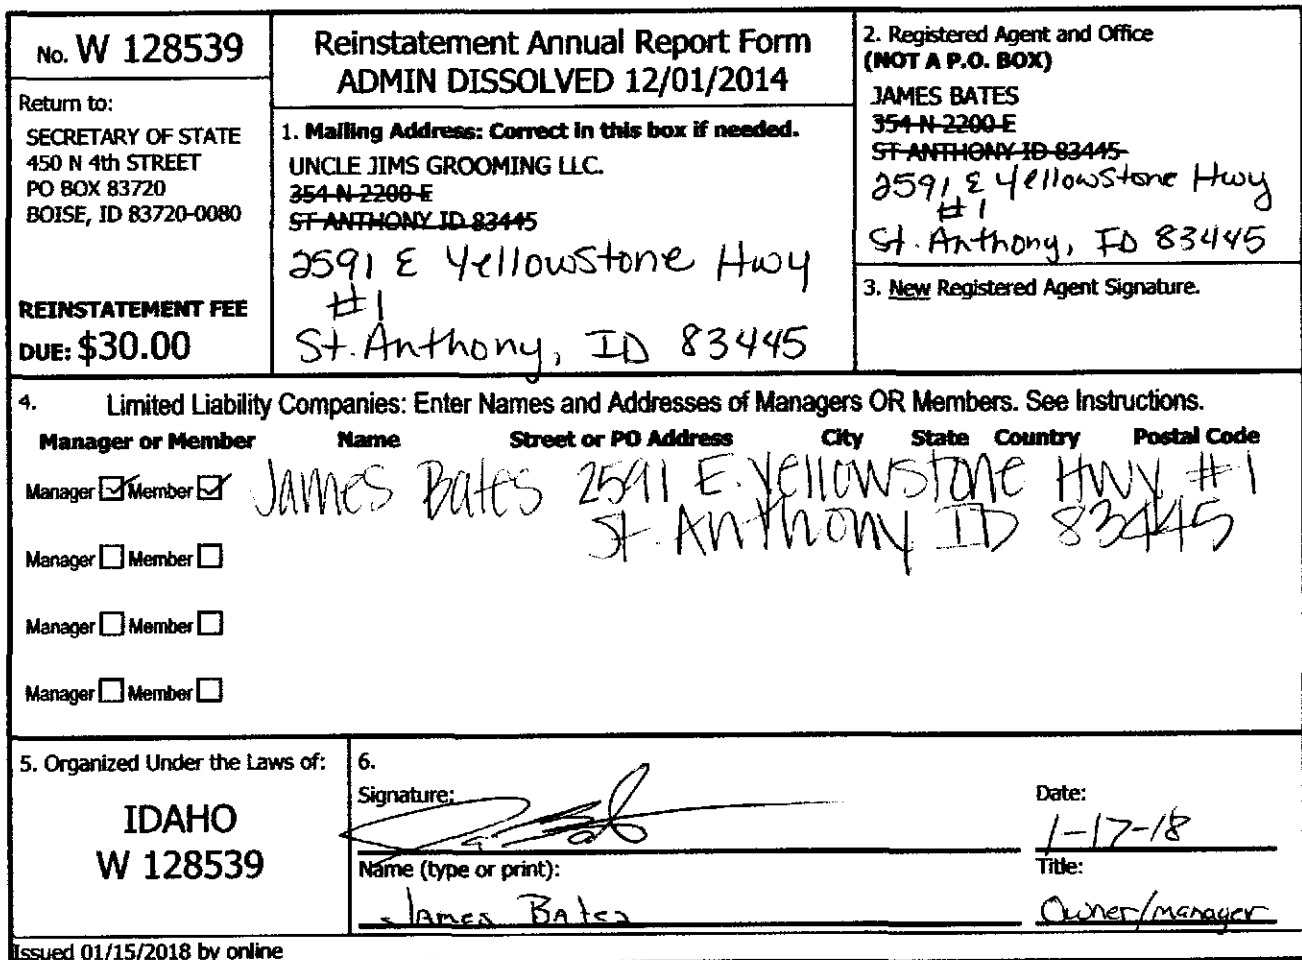 No. W 128539
Return to:
SECRETARY OF STATE
450 N 4th STREET
PO BOX 83720
BOISE, ID 83720-0080
REINSTATEMENT FEE
DUE: $30.00
Reinstatement Annual Report Form
ADMIN DISSOLVED 12/01/2014
1. Mailing Address: Correct in this box if needed.
UNCLE JIMS GROOMING LLC.
354 N 2200 E
ST ANTHONY ID 83445
2591 E Yellowstone Hwy
#1
St. Anthony, ID 83445
2. Registered Agent and Office
(NOT A P.O. BOX)
JAMES BATES
354 N 2200 E
ST ANTHONY ID 83445
2591 E Yellowstone Hwy
#1
St. Anthony, ID 83445
3. New Registered Agent Signature.
4. Limited Liability Companies: Enter Names and Addresses of Managers OR Members. See Instructions.
Manager or Member Name Street or PO Address City State Country Postal Code
Manager Member James Bates 2591 E. Yellowstone Hwy #1
St. Anthony ID 83445
Manager Member
Manager Member
Manager Member
5. Organized Under the Laws of:
IDAHO
W 128539
6.
Signature:
Date:
1-17-18
Name (type or print):
James Bates
Title:
Owner/manager
Issued 01/15/2018 by online